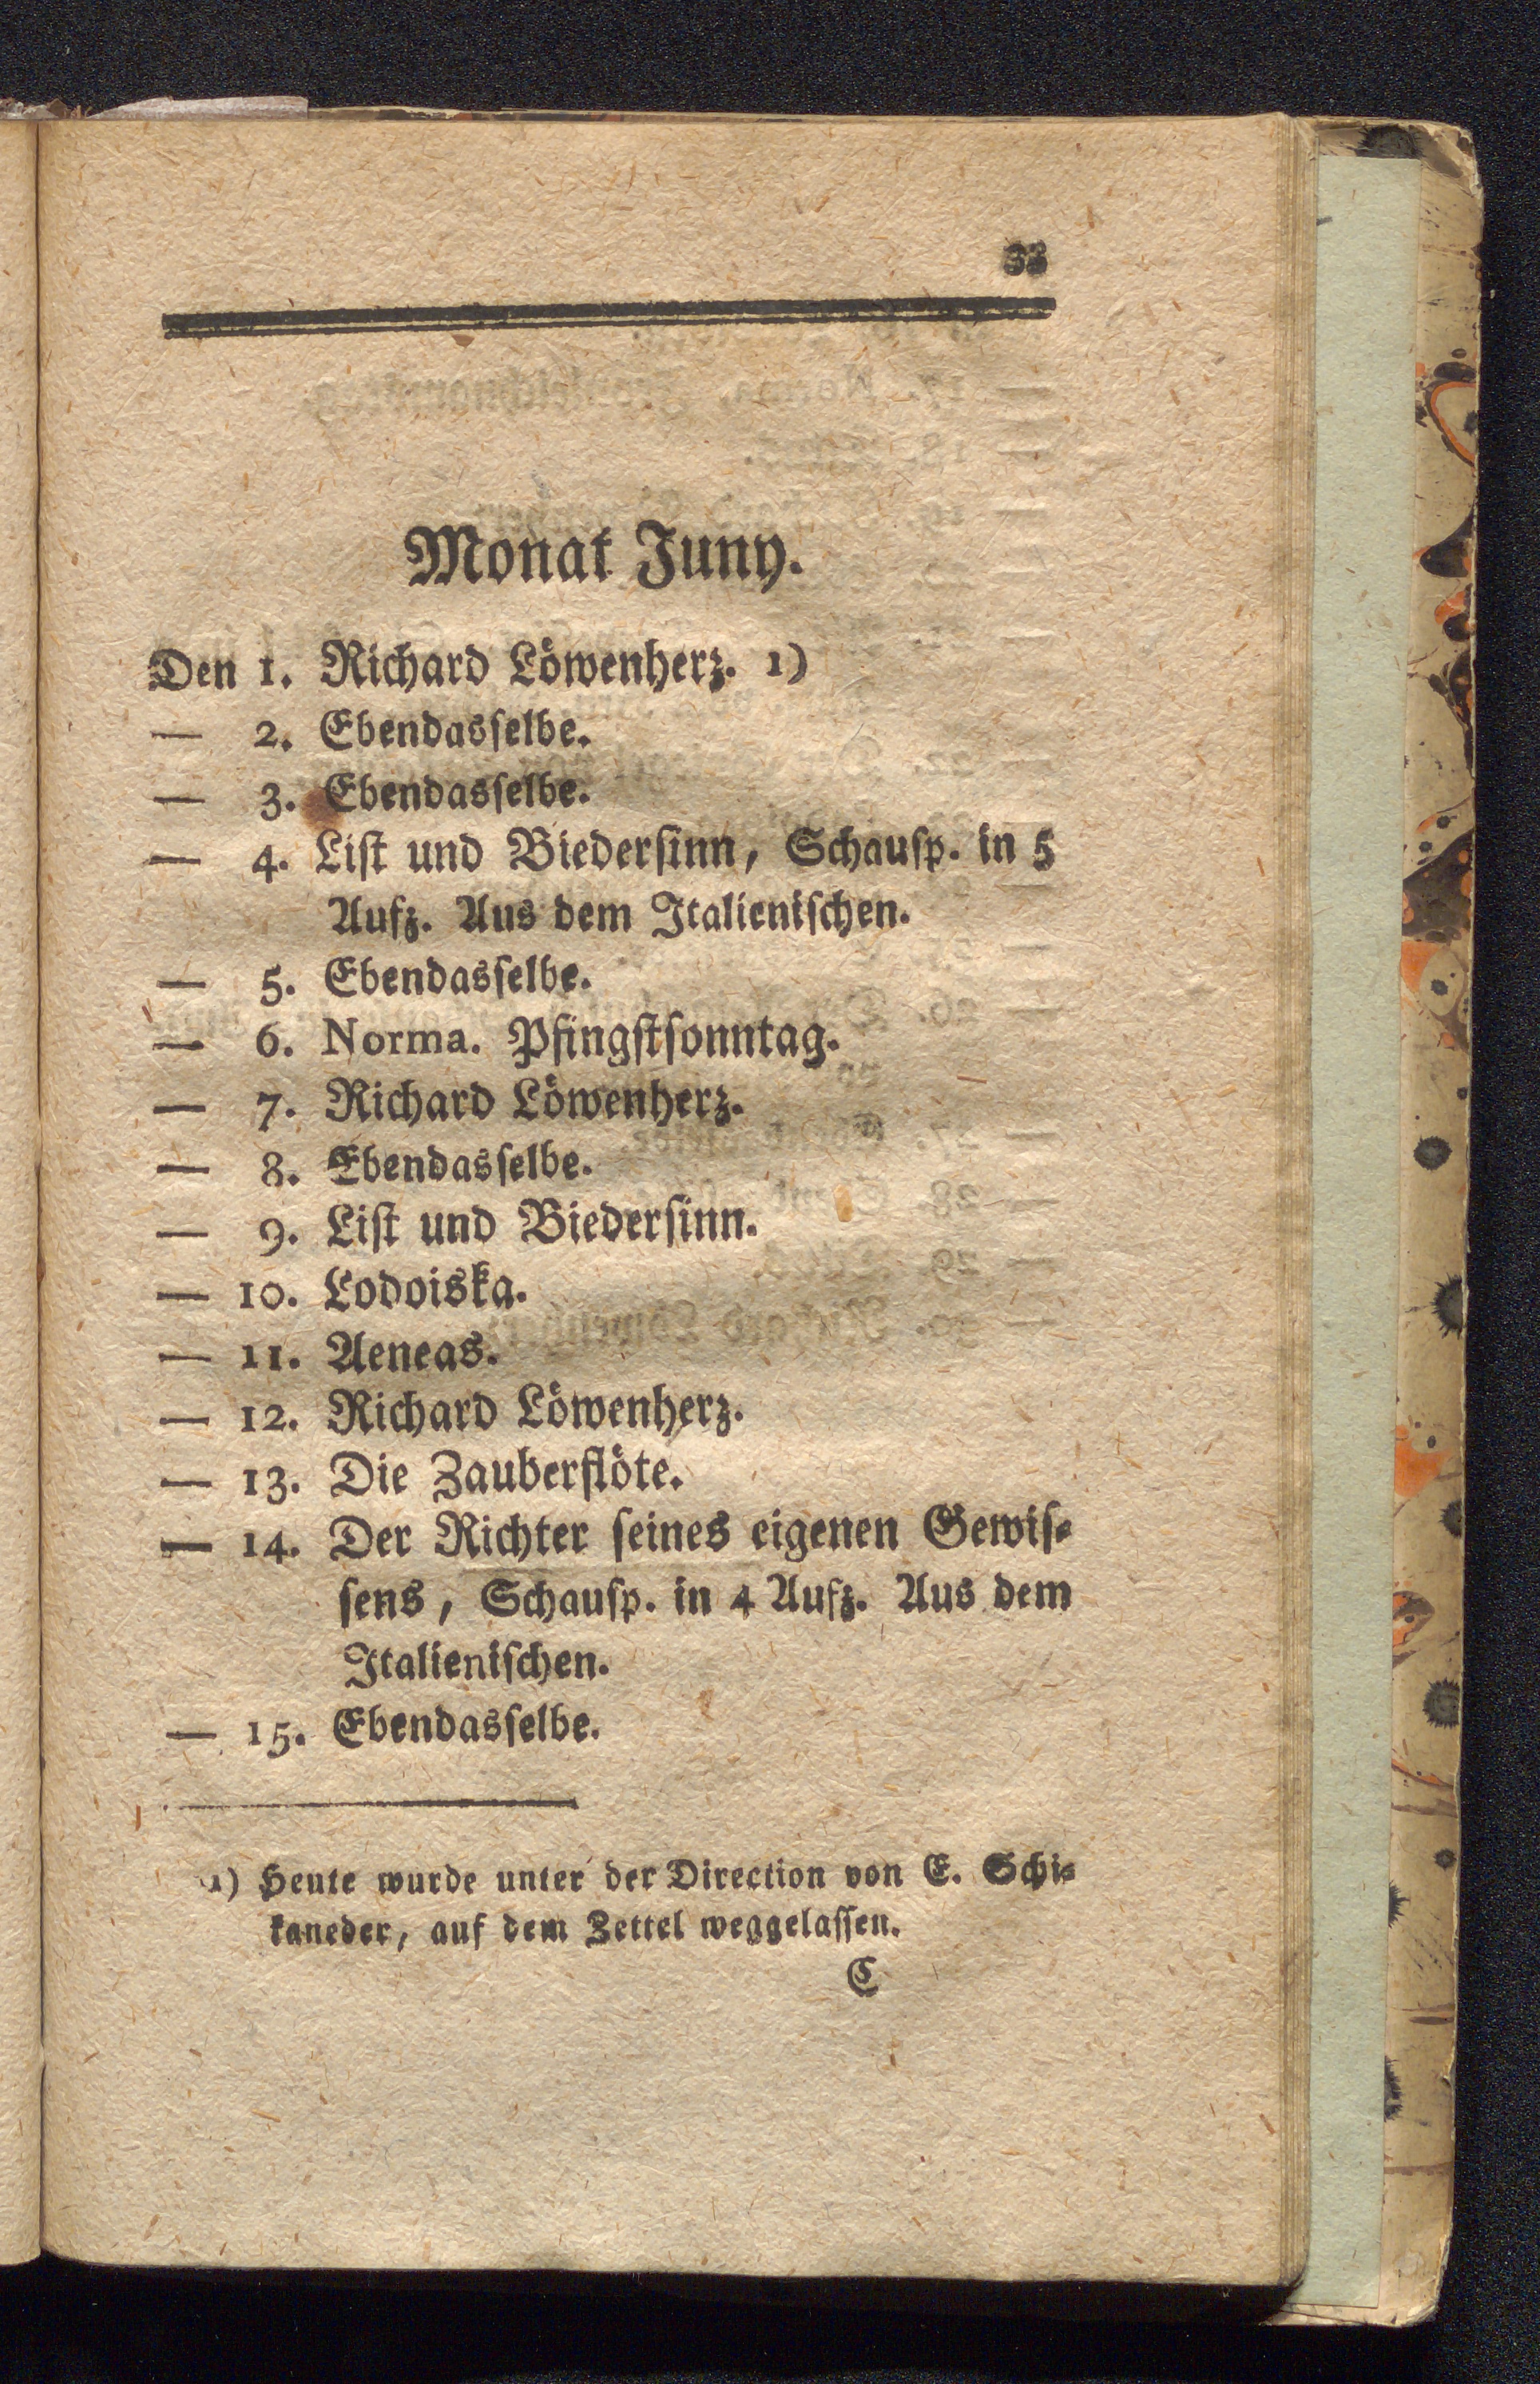 33
Monat Juny.
Den 1. Richard Löwenherz. 1)
— 2. Ebendasſelbe.
— 3. Ebendasſelbe.
— 4. Liſt und Biederſinn, Schauſp. in 5
Aufz. Aus dem Italieniſchen.
— 5. Ebendasſelbe.
— 6. Norma. Pfingſtſonntag.
— 7. Richard Löwenherz.
— 8. Ebendasſelbe.
— 9. Liſt und Biederſinn.
— 10. Lodoiska.
— 11. Aeneas.
— 12. Richard Löwenherz.
— 13. Die Zauberflöte.
— 14. Der Richter ſeines eigenen Gewiſ⸗
ſens, Schauſp. in 4 Aufz. Aus dem
Italieniſchen.
— 15. Ebendasſelbe.
1) Heute wurde unter der Direction von E. Schi⸗
kaneder, auf dem Zettel weggelaſſen.
C